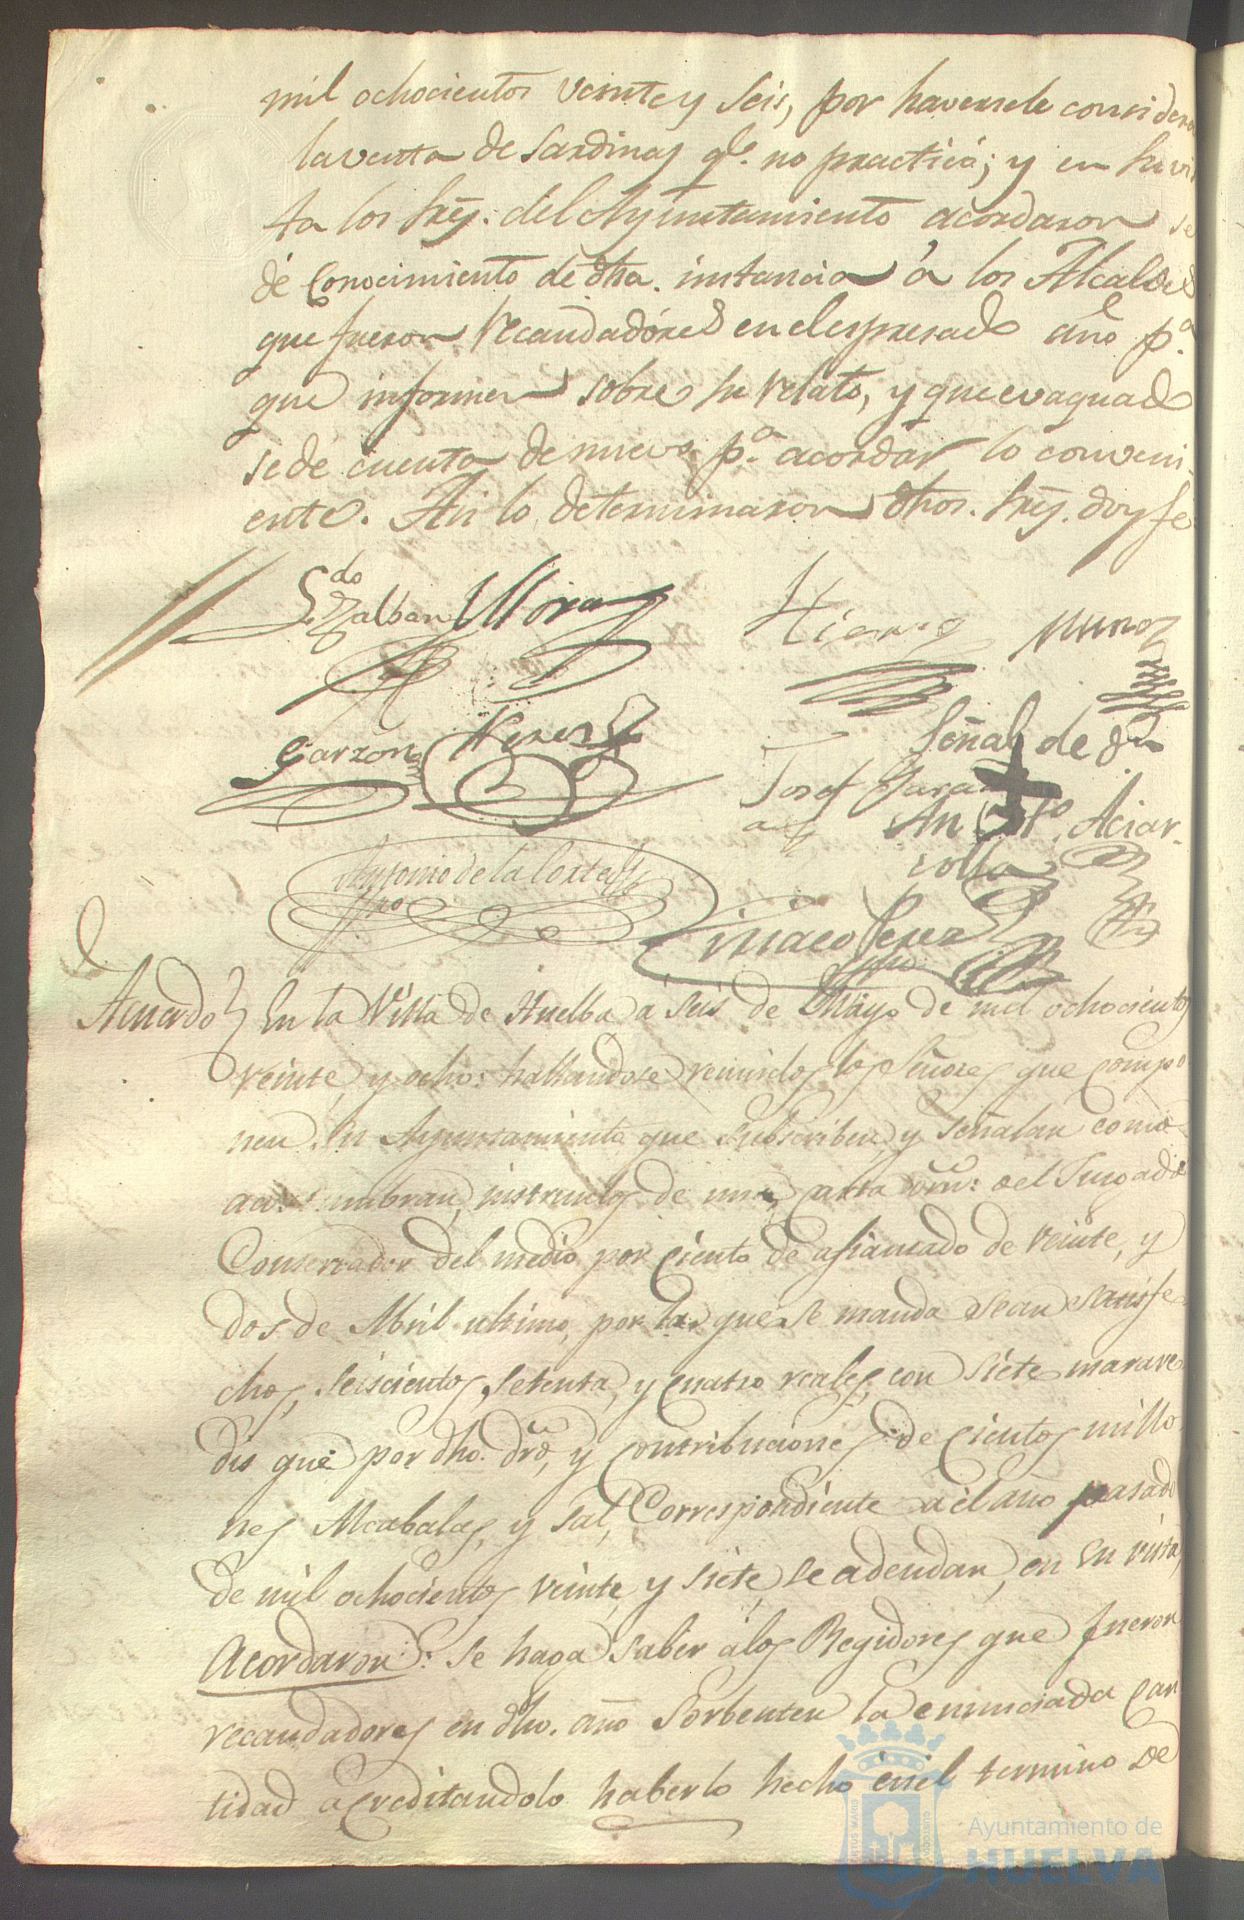 mil ochocientos veinte y seis, por haversele considera
la venta de Sardinas qe. no practicó; y en su vis
ta los Sres. del Ayuntamiento acordaron se
dé conocimiento de dha. instancia á los Alcaldes
que fueron Recaudadóres en el espresado año pa.
que informen sobre su relato, y que evaquado
se dé cuenta de nuevo pa. acordar lo conveni-
ente. Asi lo determinaron dhos. Sres. doy fe
Ldo Zalban Mora Muñoz
Garzon
Señal de Dn
Josef Garz
Anto. Aciar-
Antonio de la Corte
Sno
Perez
Sno
Acuerdo En la Villa de Huelba a seis de Mayo de mil ochocientos
veinte, y ocho: hallandose reunidos los Señores que compo
nen su Ayuntamiento que subscriben, y señalan como
acostumbran, instruidos de una carta orn: del Juzgado
Conservador del medio por ciento de afianzado de veinte, y
dos de Abril ultimo, por la que se manda sean satisfe
chos, seiscientos, setenta, y cuatro reales, con siete marave
dis que por dho. dro, y contribuciones de cientos millo
nes Alcabalas, y sal, Correspondiente a el año pasado
de mil ochocientos veinte, y siete, se adeudan, en su vista,
Acordaron: Se haga saber á los Regidores que fueron
recaudadores en dho. año Solbenten la enunciada can
tidad acreditandolo haberlo hecho en el termino de
Ayuntamiento de
HUELVA